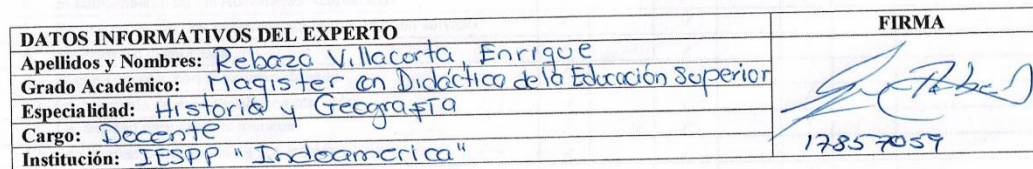 DATOS INFORMATIVOS DEL EXPERTO
FIRMA
Apellidos y Nombres: Rebaza Villacorta, Enrique
Grado Académico: Magister en Didáctica de la Educación Superior
Especialidad: Historia y Geografía
Cargo: Docente
Institución: IESPP "Indoamerica"
17857059